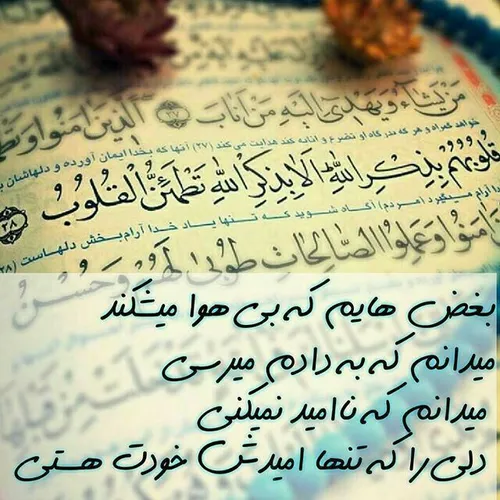 مَن يَشَاءُ وَيَهْدِي إِلَيْهِ مَنْ أَنَابَ ﴿٢٧﴾ الَّذِينَ آمَنُوا وَتَطْ
خواهد گمراه و هر که بدرگاه او تضرع و انابه کند هدایت می کند (۲۷) آنها که بخدا ایمان آورده و دلهاشان
قُلُوبُهُم بِذِكْرِ اللَّهِ أَلَا بِذِكْرِ اللَّهِ تَطْمَئِنُّ الْقُلُوبُ ﴿٢٨﴾
آرام میگیرد (مردم) آگاه شوید که تنها یاد خدا آرام بخش دلهاست (۲۸
آمَنُوا وَعَمِلُوا الصَّالِحَاتِ طُوبَىٰ لَهُمْ وَحُسْنُ
بغض هایم که بی هوا میشکند
میدانم که به دادم میرسی
میدانم که ناامید نمیکنی
دلی را که تنها امیدش خودت هستی